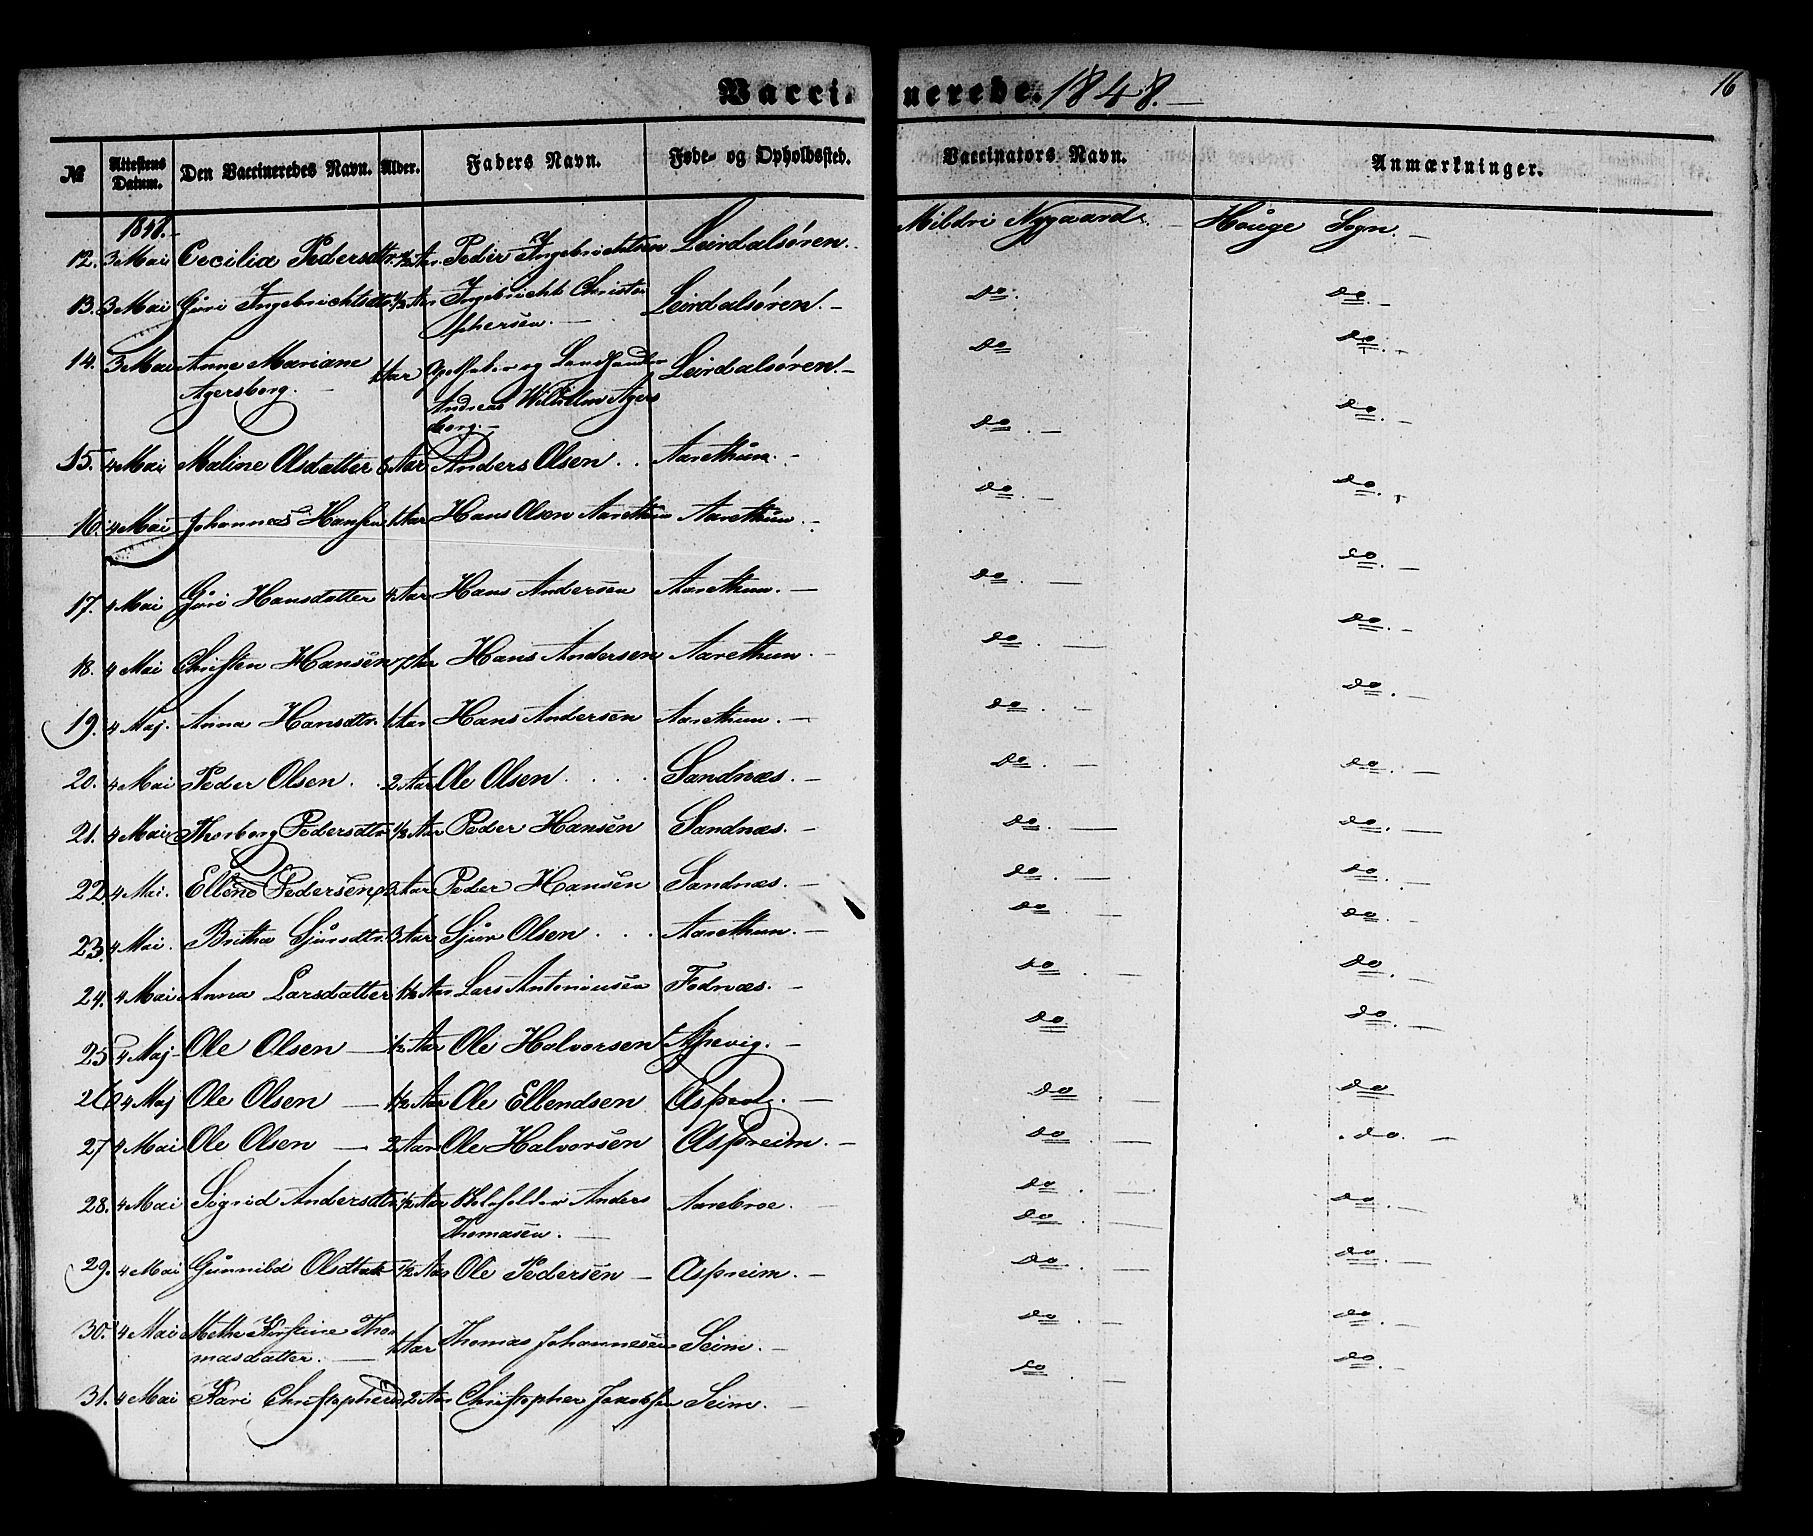 Vaccinerede. 1848.
16
№ Attestens Datum. Den Vaccineredes Navn. Alder. Faders Navn. Føde- og Opholdssted. Vaccinators Navn. Anmærkninger.
1848.
12. 3 Mai Cecilia Pedersdtr. 1/2 Aar Peder Ingebrichtsen Leirdalsören. Mildri Nygaard. Houge Sogn.
13. 3 Mai Guri Ingebrichtsdtr 1/2 Aar Ingebricht Christo Leirdalsören. do. do.
phersen.
14. 3 Mai Anne Mariane 1 Aar Apotheker og Landhandler Leirdalsören. do do.
Agersborg. Andreas Wilhelm Agers
borg.
15. 4 Mai Maline Olsdatter 6 Aar Anders Olsen Aarethun. do. do.
16. 4 Mai Johannes Hansen 1 Aar Hans Olsen Aarethun Aarethun. do. do.
17. 4 Mai Guri Hansdatter 4 Aar Hans Andersen Aarethun. do. do.
18. 4 Mai Christen Hansen 7 Aar Hans Andersen Aarethun. do. do.
19. 4 Maj. Anna Hansdtr. 1 Aar Hans Andersen Aarethun. do. do.
20. 4 Mai Peder Olsen. 2 Aar Ole Olsen. Sandnæs. do. do.
21. 4 Mai Thorborg Pedersdtr 1/2 Aar Peder Hansen Sandnæs. do. do.
22 4 Mai. Ellend Pedersen 2 Aar Peder Hansen Sandnæs. do. do.
23. 4 Mai. Britha Sjursdtr. 3 Aar Sjur Olsen Aarethun. do. do.
24. 4 Mai Anna Larsdatter 1 1/2 Aar Lars Antoniusen Fodnæs. do do.
25 4 Maj Ole Olsen 1/2 Aar Ole Halvorsen Aspevig. do do.
26 4 Maj Ole Olsen 1 1/2 Aar Ole Ellendsen do. do
27 4 Mai Ole Olsen 2 Aar Ole Halvorsen Aspreim. do do.
28. 4 Mai Sigrid Andersdtr. 1/2 Aar Anders Aarebroe. do. do.
Thomasen. do.
29. 4 Mai Gunnild 1/2 Aar Ole Pedersen Aspreim. do. do.
30. 4 Mai Methe Kirstine Tho 1 Aar Thomas Johannesen Seim. do. do.
masdatter.
31. 4 Mai Kari 2 Aar Christopher Jacobsen Seim. do do.